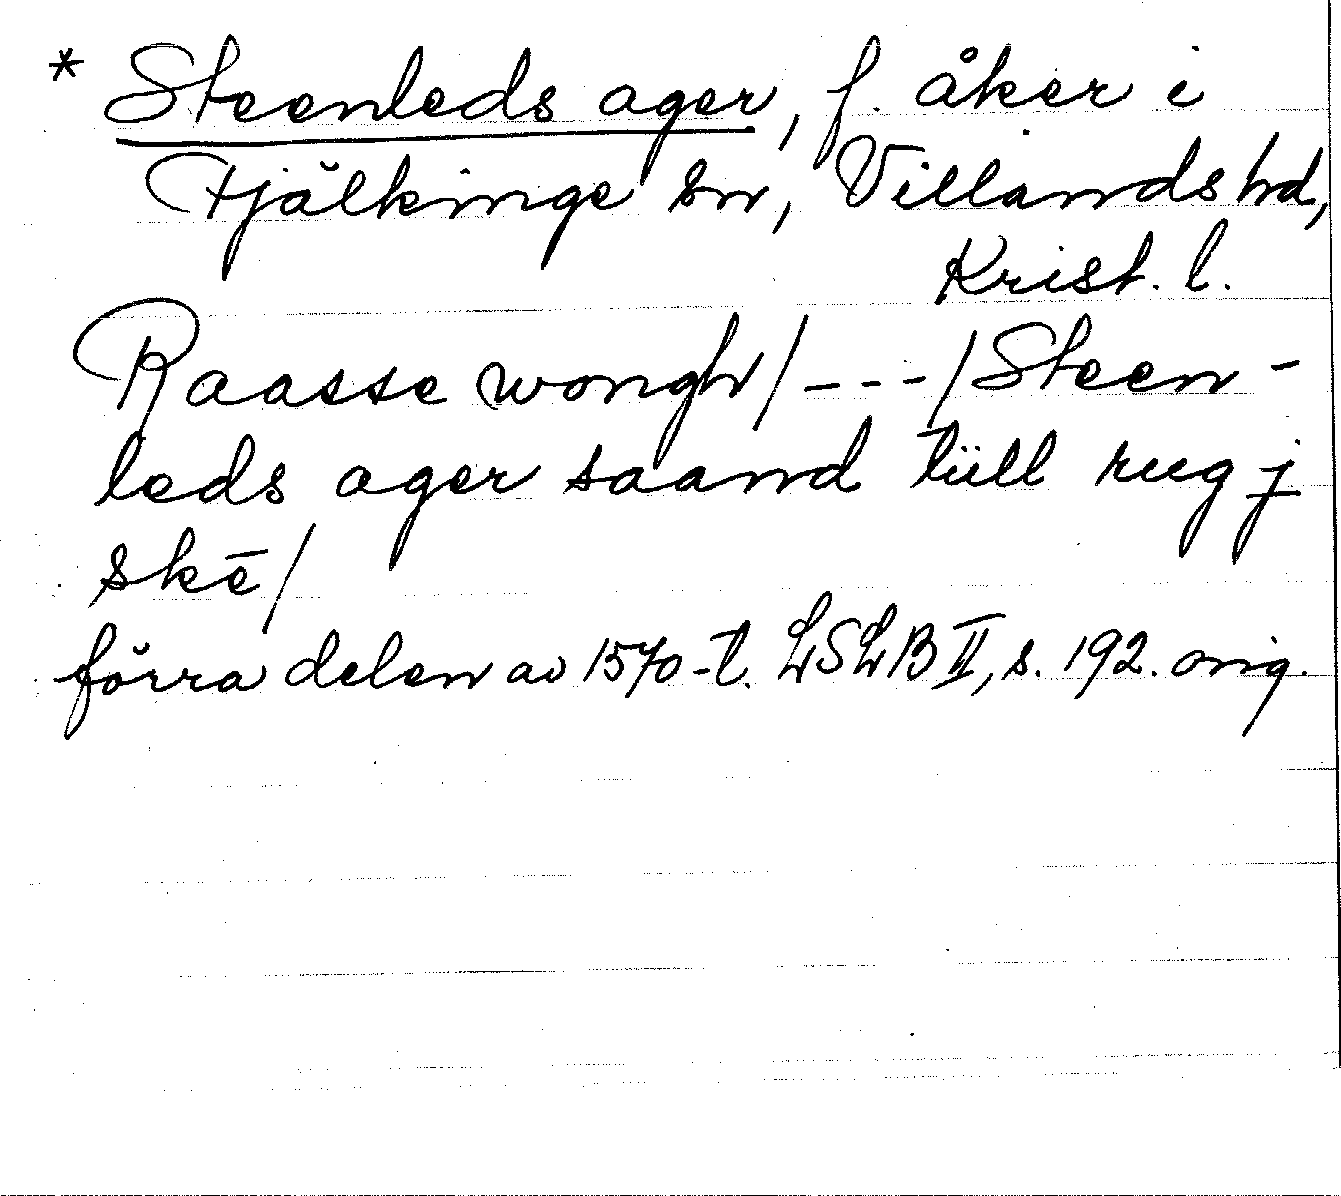 * Steenleds ager, f. åker i
Fjälkinge sn, Villands hd,
Krist. l.
Raasse wongh/---/Steen-
leds ager saand tüll rug j
skē/
förra delen av 1570-t. LSLB II, s. 192. orig.